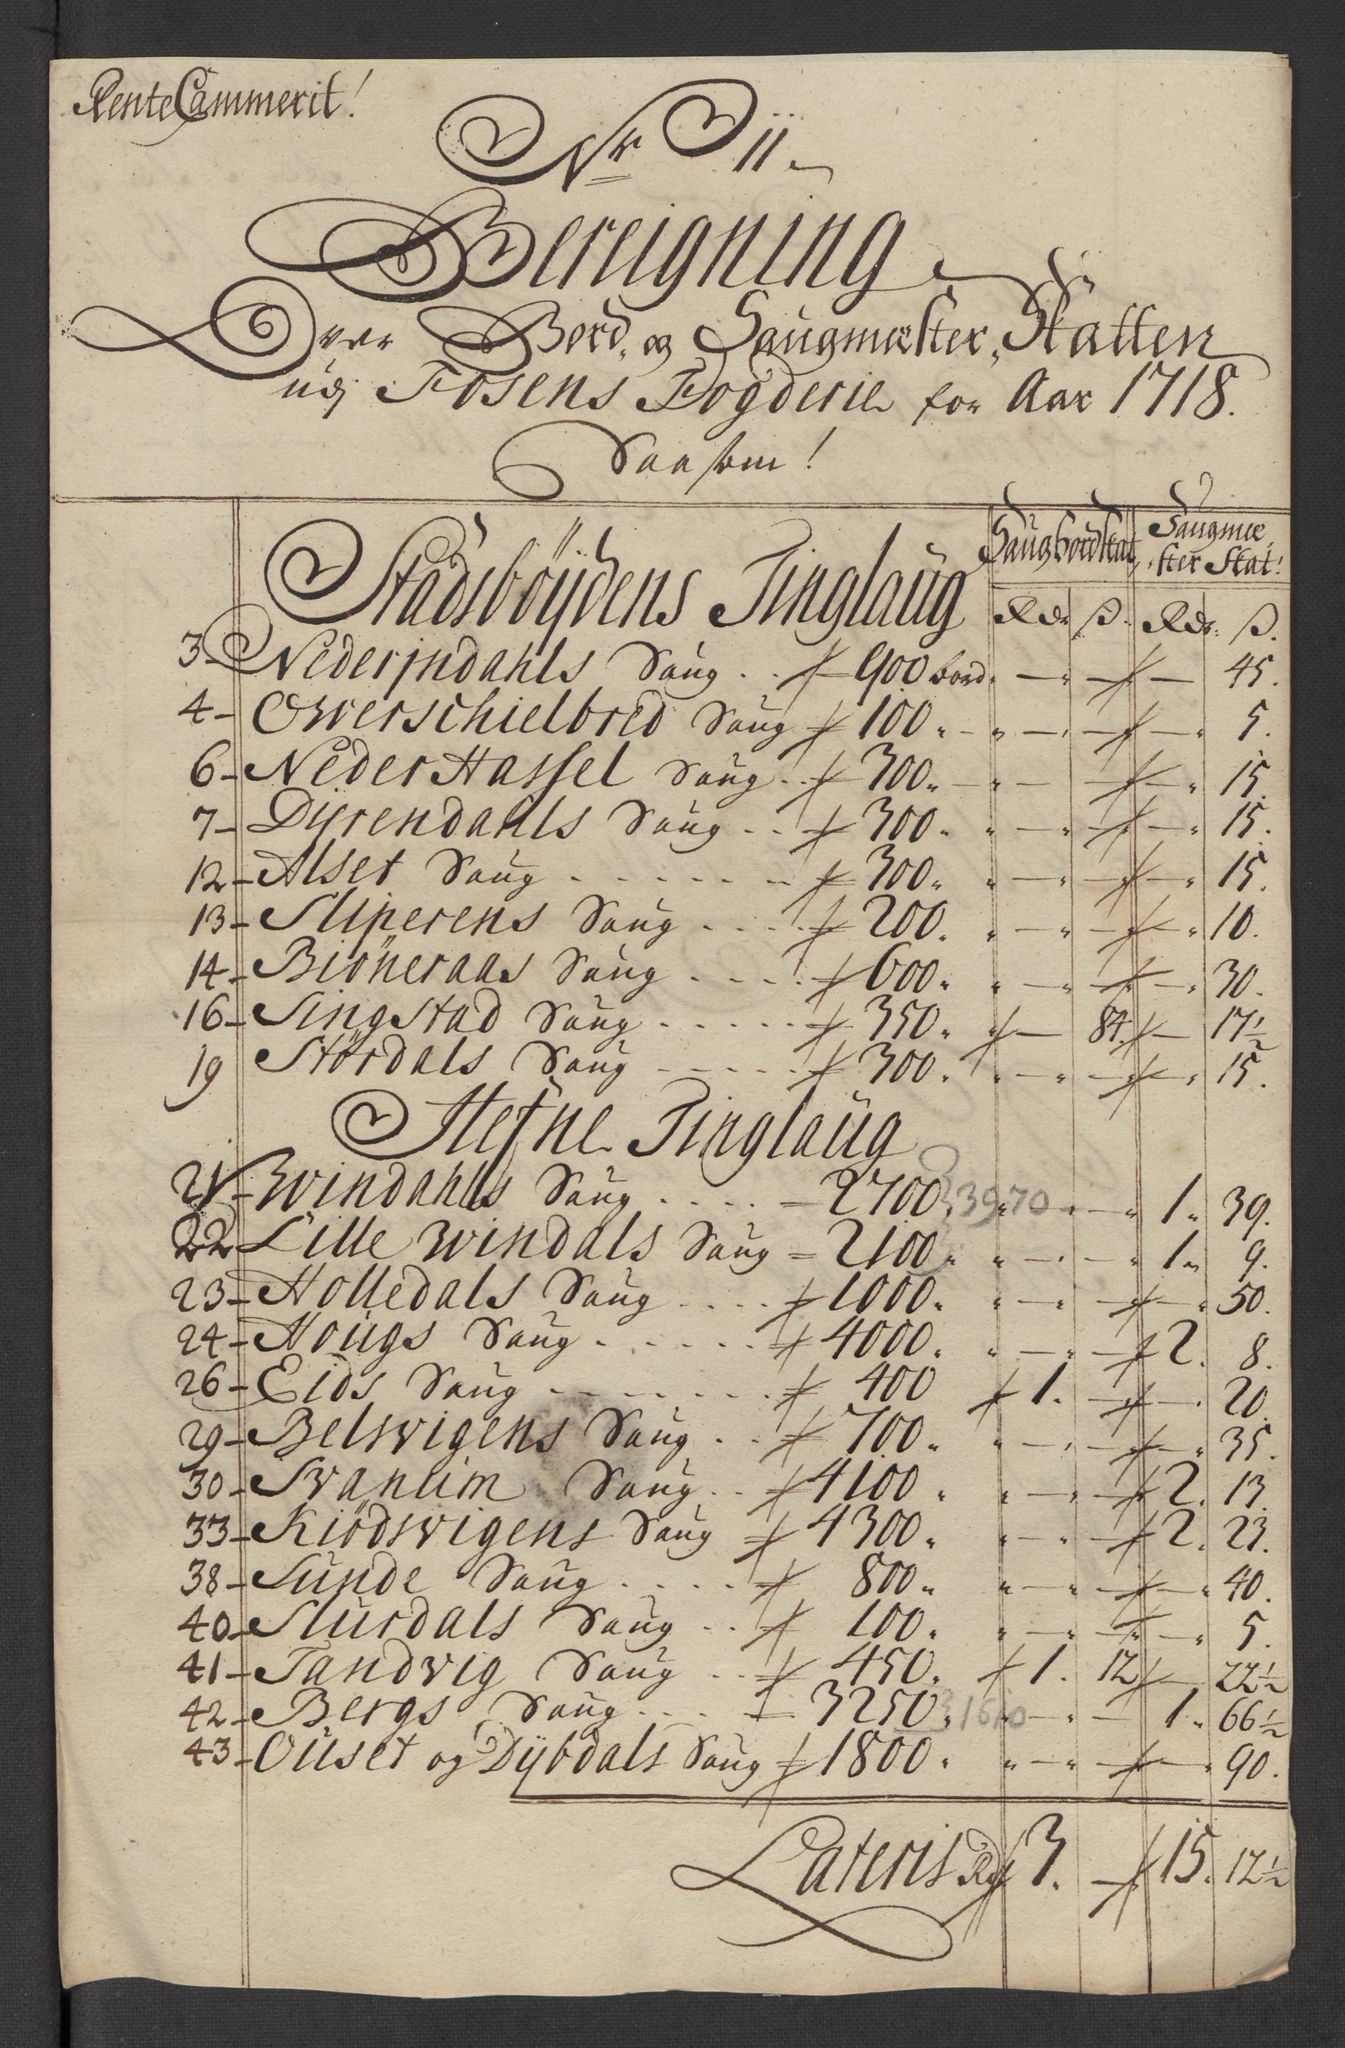 RenteCammerit!
Nr 11
Bereigning
Over Bord, og Saugmester, Skatten
udj Fosens Fogderie for Aar 1718.
Saasom!
Saugbordskat, Saugmester Skat!
Stadsböÿdens Tinglaug Rdr ß. Rdr. ß.
3 Nederjndahls Saug .. 900 bord — — — 45.
4 - Owerschielbred Saug 100. — — — 5.
6 - Neder Hassel Saug .. 300. — — — 15.
7 - Dÿrendahls Saug .. 300. — — — 15.
12 - Alset Saug . . . . 300. — — — 15.
13 - Sliperens Saug . . . . 200. — — — 10.
14 - Biöneraas Saug . . . . 600. — — — 30.
16 - Singstad Saug . . . . 350. — 84. — 17½
19 Stördals Saug . . . . 300. — — — 15.
Hefne Tinglaug
21 - Windahls Saug . . . . 2700. 3970 — — 1. 39.
22 Lille Windals Saug = 2100. — — 1. 9.
23 - Holledals Saug . . . . 1000. — — — 50.
24 - Hougs Saug . . . . 4000. — — 2. 8.
26 - Eids Saug . . . . 400 1. — — 20.
29 - Belsvigens Saug . . 700. — — — 35.
30 - Svanlim Saug . . 4100. — — 2. 13.
33 - Kiödsvigens Saug 4300. — — 2. 23.
38 - Sunde Saug . . . . 800. — — — 40.
40 - Slurdals Saug . . 100. — — — 5.
41 - Tandvig Saug . . 450. 1. 12 — 22½
42 - Bergs Saug . . . . 3250. — — 1. 66½
43 - Ouset og Dÿbdals Saug 1800. — — — 90.
Lateris Rdr 3. — 15. 12½